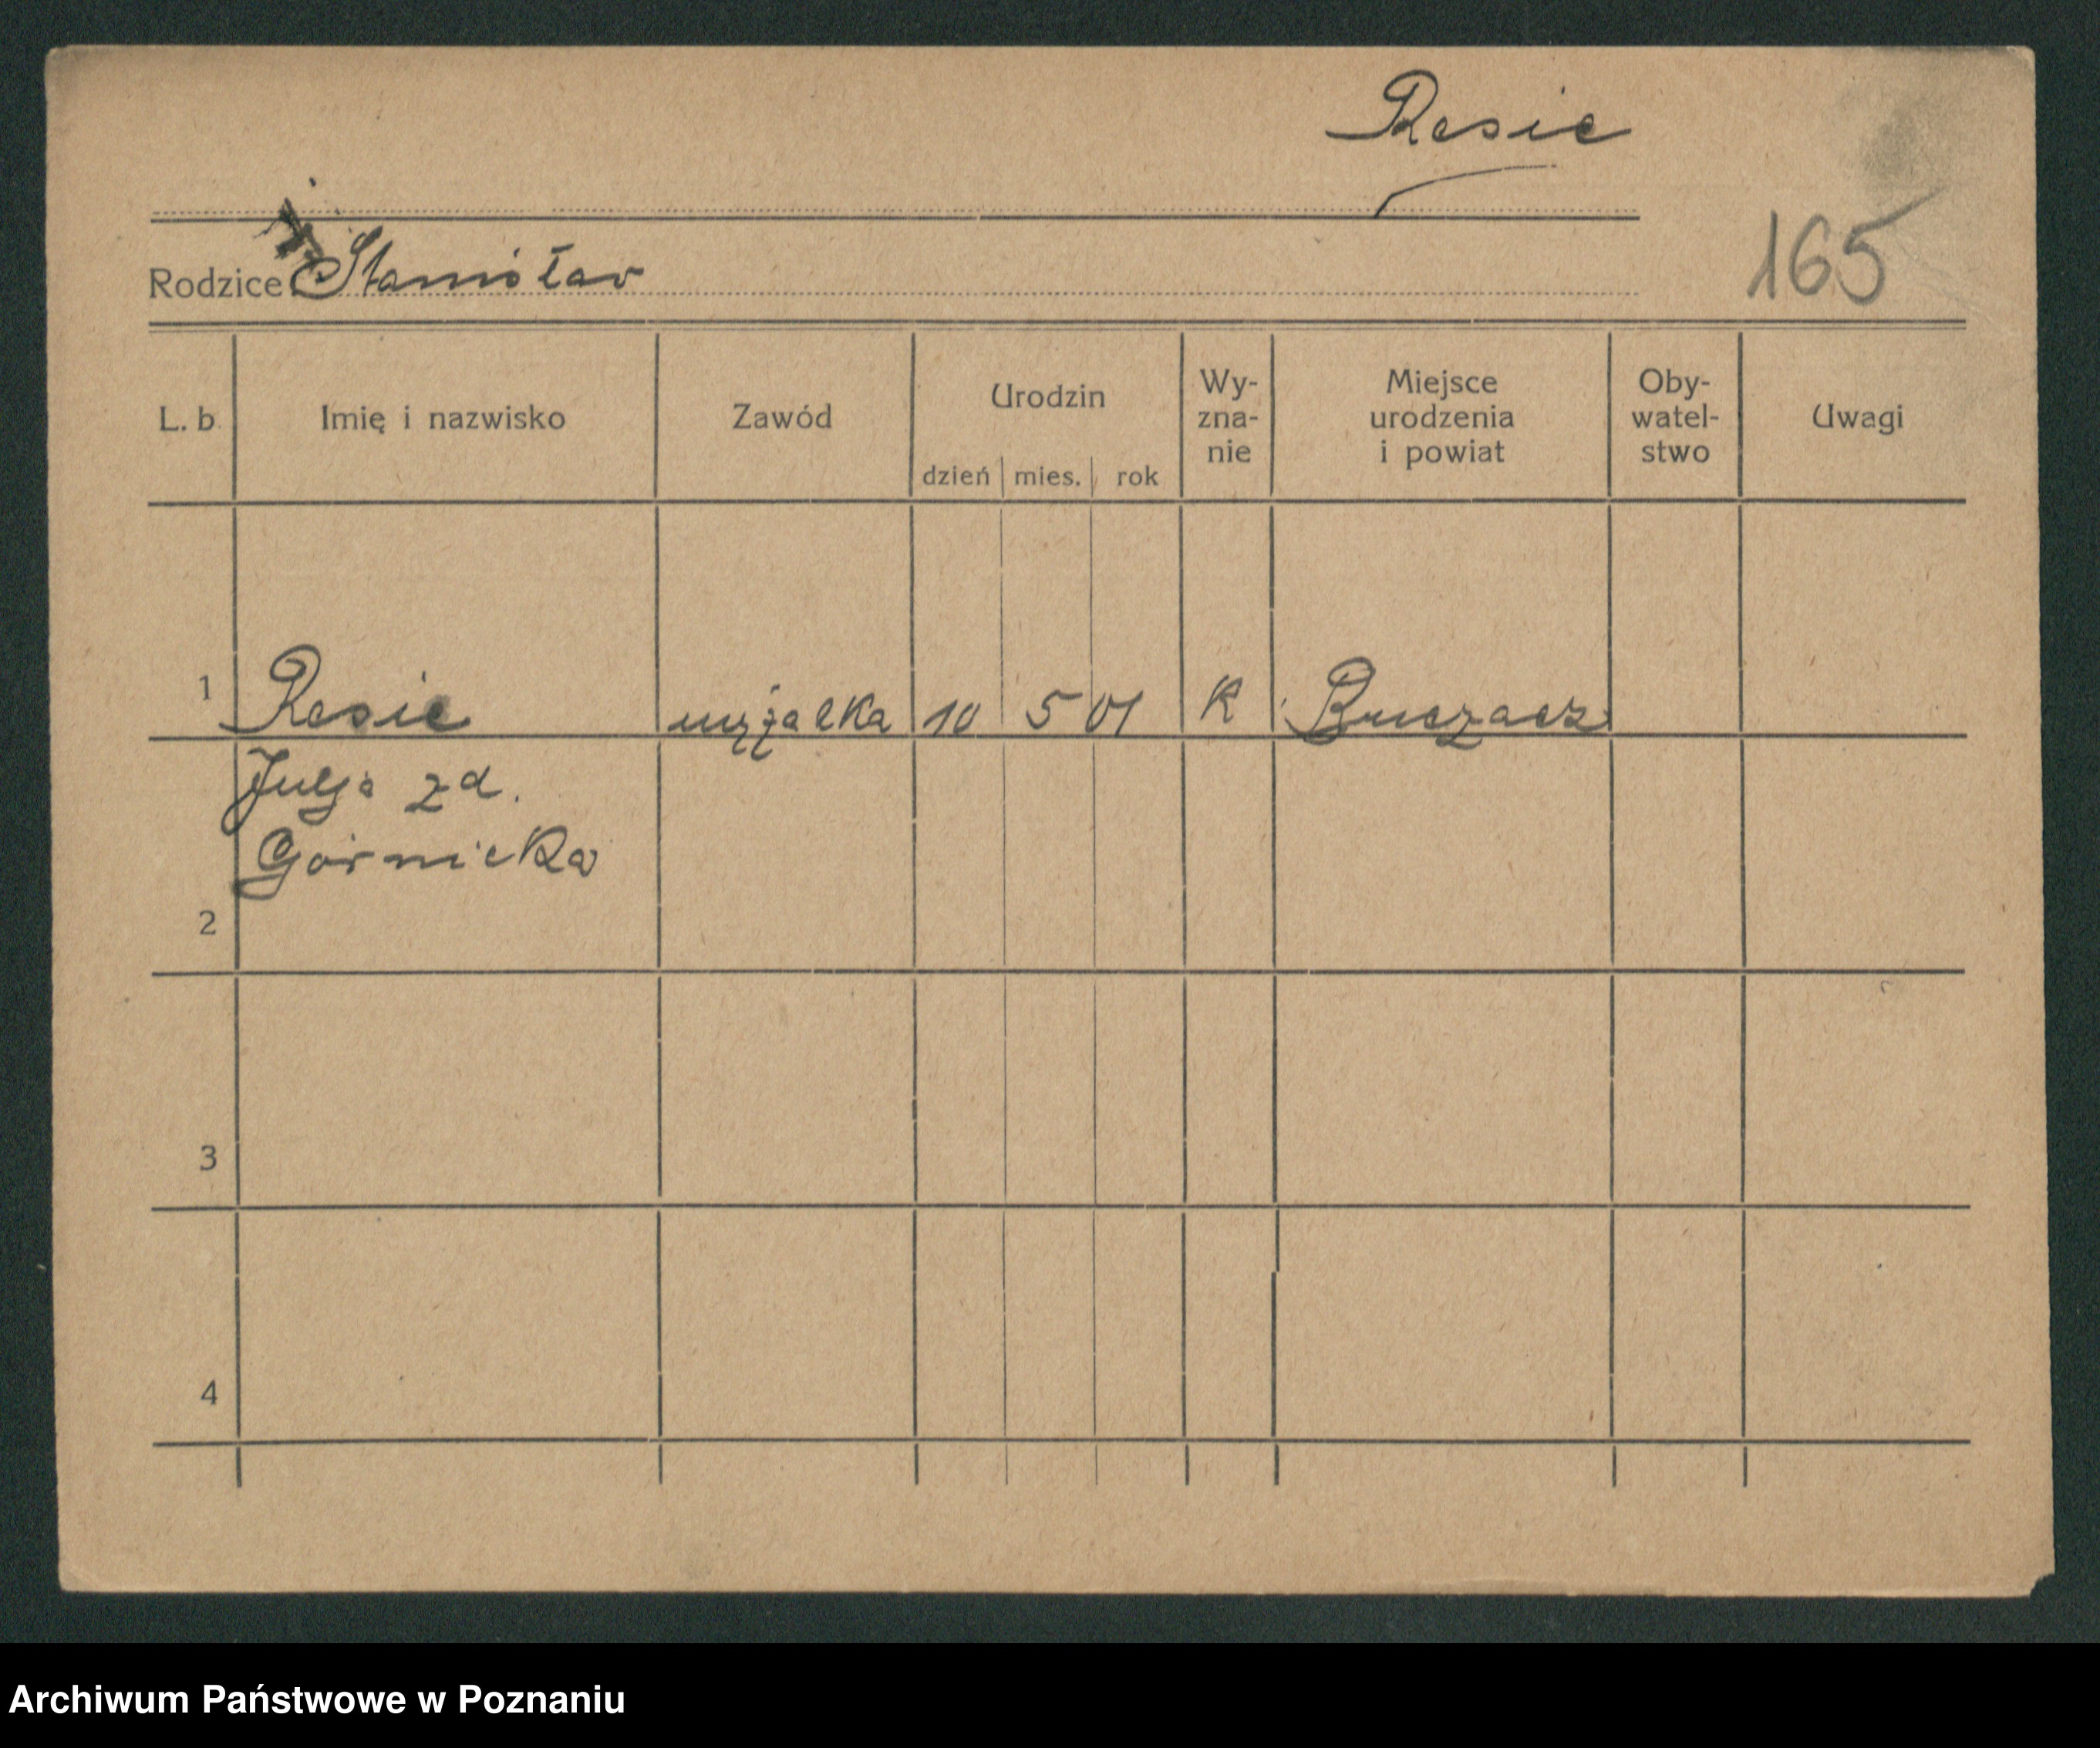 Resie
Rodzice Stanisław
165
L. b. Imię i nazwisko Zawód Urodzin dzień mies. rok Wy-zna-nie Miejsce urodzenia i powiat Oby-watel-stwo Uwagi
1 Resie 10 5 01 K Buczacz
Julja zd.
Górnicka
2
3
4
Archiwum Państwowe w Poznaniu